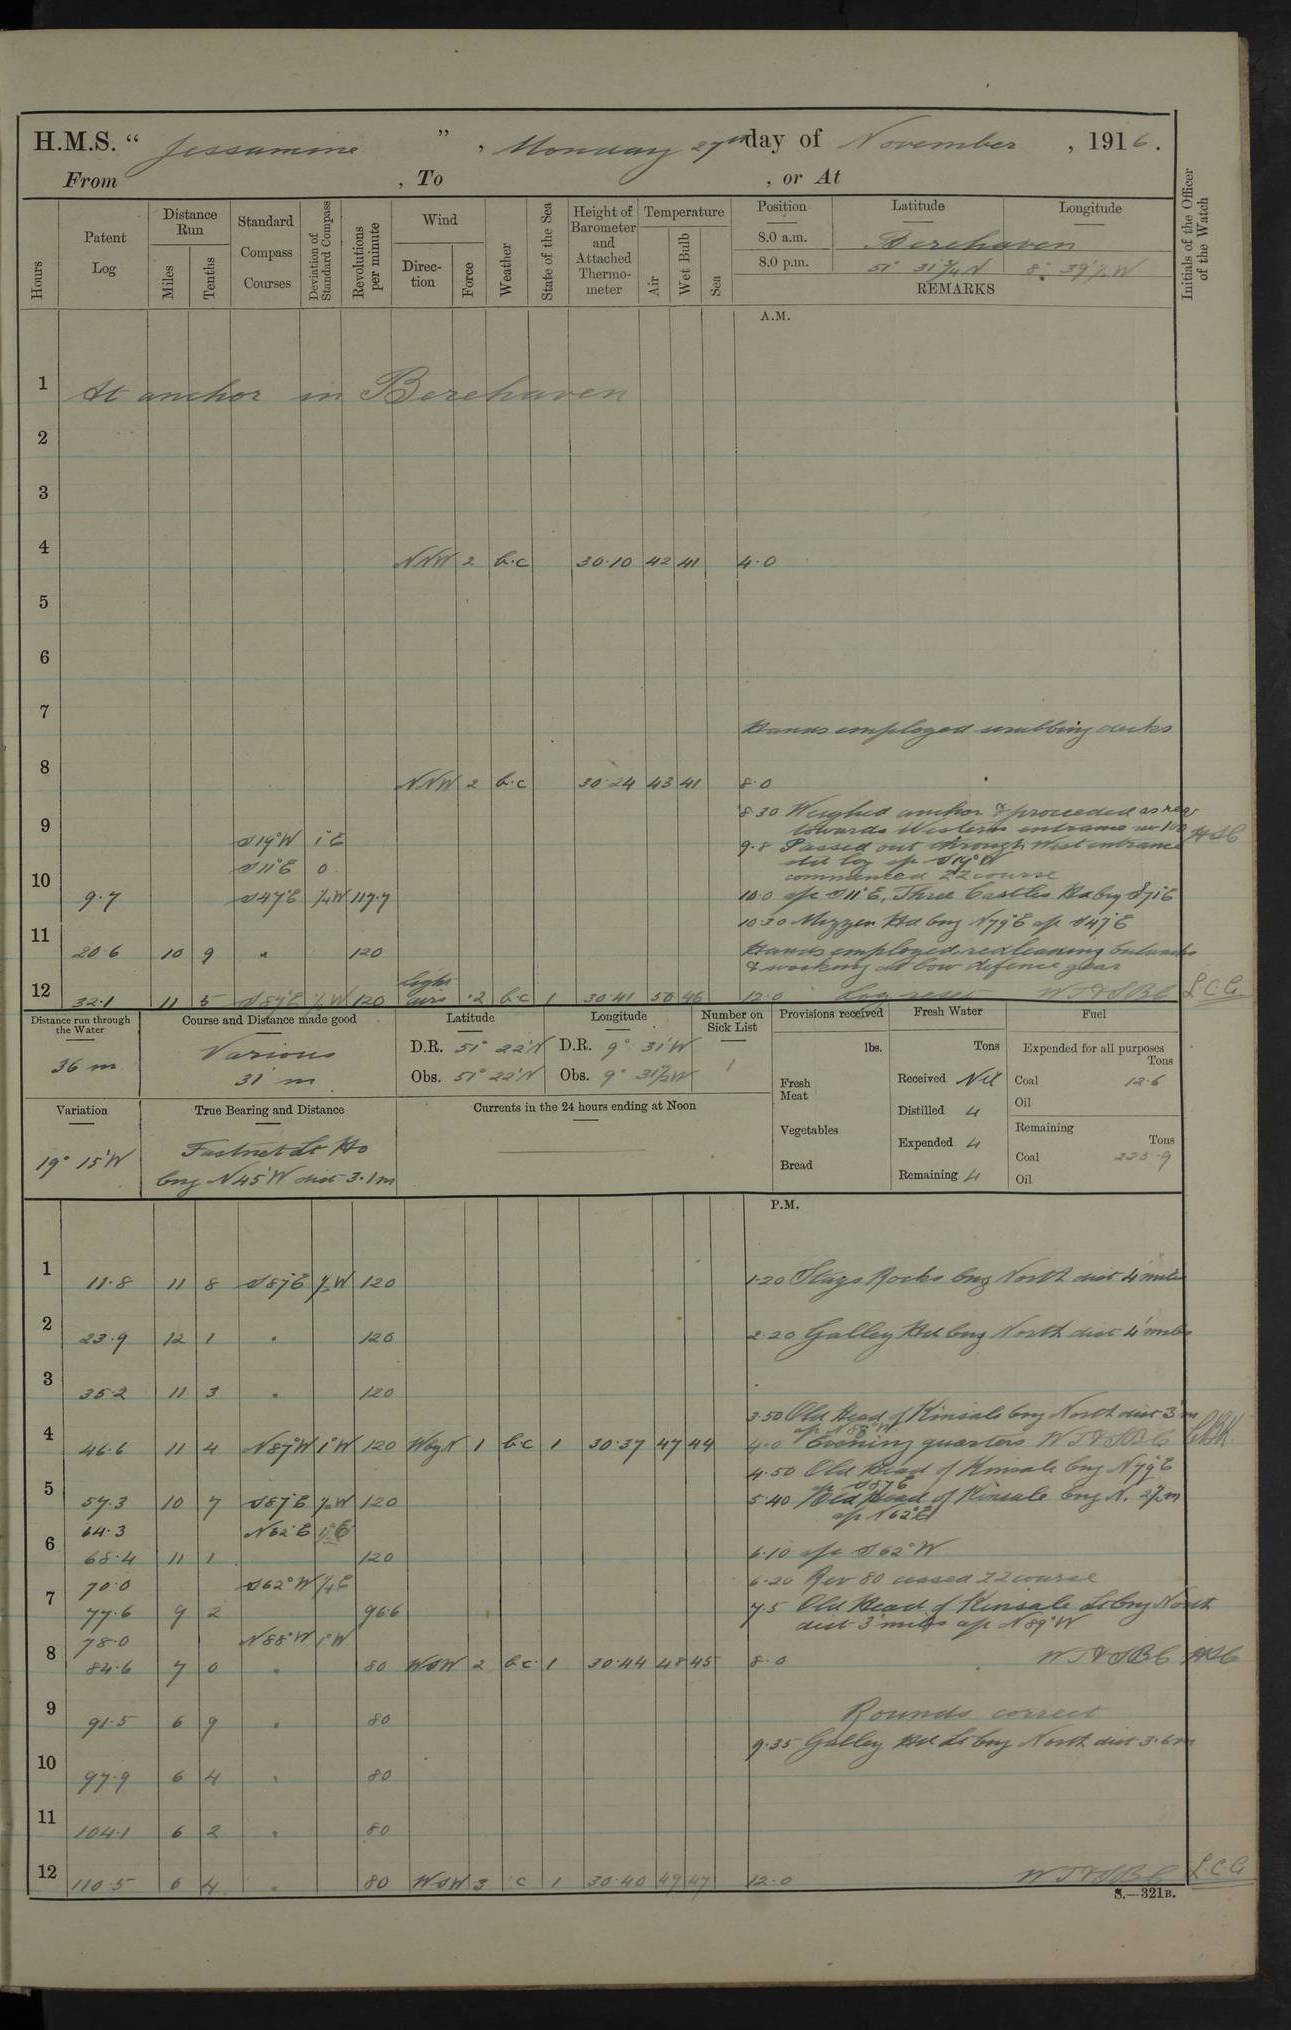 H.M.S. “ Jessamine ” , Monday 27th day of November , 1916.
From , To , or At
Hours
Patent Log
Distance Run
Miles
Tenths
Standard Compass Courses
Deviation of Standard Compass
Revolutions per minute
Wind
Direction
Force
Weather
State of the Sea
Height of Barometer and Attached Thermometer
Temperature
Air
Wet Bulb
Sea
Position
Latitude
Longitude
8.0 a.m. Berehaven
8.0 p.m. 51° 31¾ N 8° 39½ W
REMARKS
Initials of the Officer of the Watch
A.M.
1 At anchor in Berehaven
2
3
4 NNW 2 b.c 30.10 42 41 4.0
5
6
7
Hands employed scrubbing decks
8 NNW 2 b.c 30.24 43 41 8.0
8.30 Weighed anchor & proceeded as req
towards Western entrance
9 S19°W 1°E
9.8 Passed out through West entrance
std log a/c S19°W
S11°E 0
commenced ZZ course
10 9.7 S47°E ¼W 117.7 10.0 a/c S11°E, Three Castles Hd brg S71°E
10.30 Mizzen Hd brg N79°E a/c S47°E
11 20.6 10 9 " 120 Hands employed redleading bulwarks
& working at bow defence gear
12 32.1 11 5 S87°E ½W 120 light airs .2 b.c 1 30.41 50 46 12.0 Log reset WTASBC L.C.G.
Distance run through the Water
36 m
Course and Distance made good
Various
31 m
Latitude
D.R. 51° 22'N
Obs. 51° 22'N
Longitude
D.R. 9° 31'W
Obs. 9° 31½W
Number on Sick List
1
Provisions received
lbs.
Fresh Meat
Vegetables
Bread
Fresh Water
Tons
Received Nil
Distilled 4
Expended 4
Remaining 4
Fuel
Expended for all purposes
Tons
Coal 12.6
Oil
Remaining
Tons
Coal 225.9
Oil
Variation
19° 15'W
True Bearing and Distance
Fastnet Lt Ho
brg N45°W dist 3.1m
Currents in the 24 hours ending at Noon
P.M.
1 11.8 11 8 S87°E ½W 120 1.20 Stags Rocks brg North dist 4 miles
2 23.9 12 1 " 120 2.20 Galley Hd brg North dist 4 miles
3 35.2 11 3 " 120
3.50 Old Head of Kinsale brg North dist 3 m
a/c N88°W
4 46.6 11 4 N87°W 1°W 120 WbyN 1 b.c 1 30.37 47 44 4.0 Evening quarters WTASBC
4.50 Old Head of Kinsale brg N79°E
a/c S87°E
5 57.3 10 7 S87°E ½W 120 5.40 Old Head of Kinsale brg N. 2½m
a/c N62°E
64.3 N62°E 1°E
6 68.4 11 1 120 6.10 a/c S62°W
70.0 S62°W ¼E 6.20 Rev 80 ceased ZZ course
7 77.6 9 2 96.6 7.5 Old Head of Kinsale Lt brg North
dist 3 miles a/c N89°W
78.0 N88°W 1°W
8 84.6 7 0 " 80 WSW 2 b.c 1 30.44 48 45 8.0 WTASBC
9 91.5 6 9 " 80 Rounds correct
9.35 Galley Hd Lt brg North dist 3.6m
10 97.9 6 4 " 80
11 104.1 6 2 " 80
12 110.5 6 4 " 80 WSW 3 c 1 30.40 49 47 12.0 WTASBC L.C.G.
S.—321B.